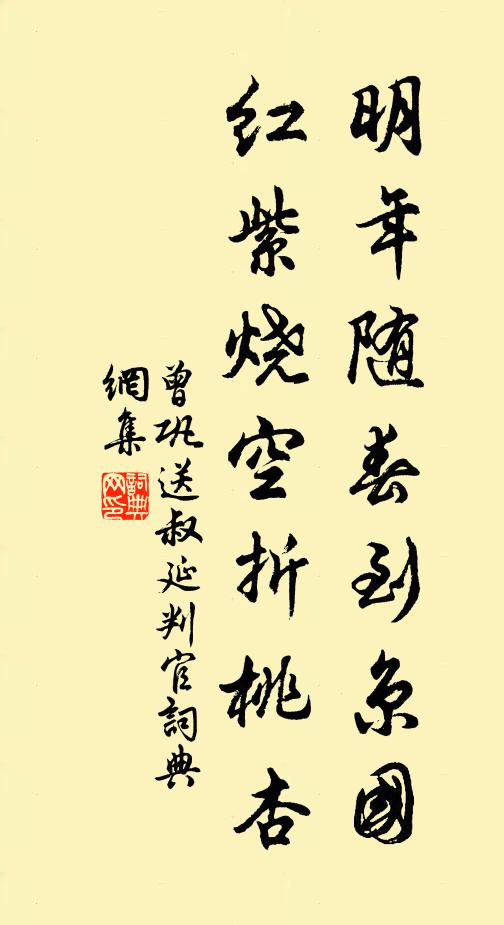 明年随春到京國
红紫烧空折桃杏
曾巩送叔延判官詞典
網集
詞典網印